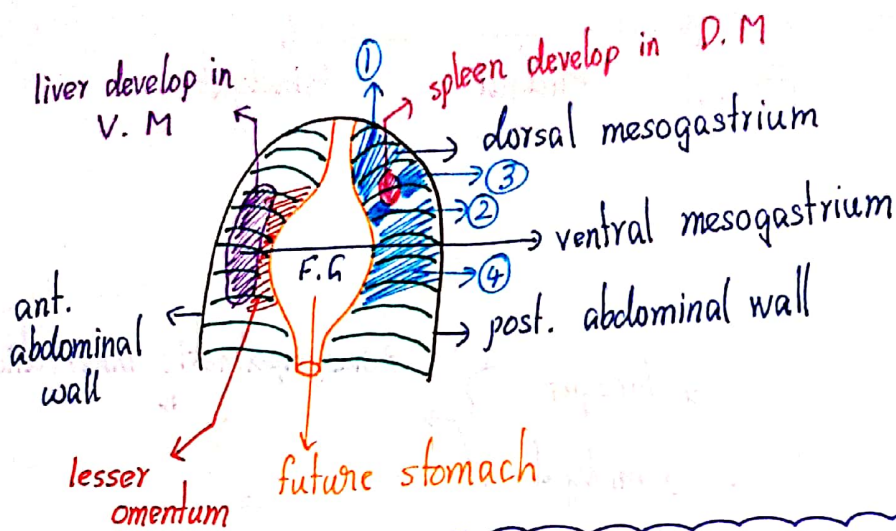 ①
spleen develop in D.M
liver develop in
V. M
dorsal mesogastrium
③
②
ventral mesogastrium
F.G
④
ant.
abdominal
wall
post. abdominal wall
lesser
omentum
future stomach